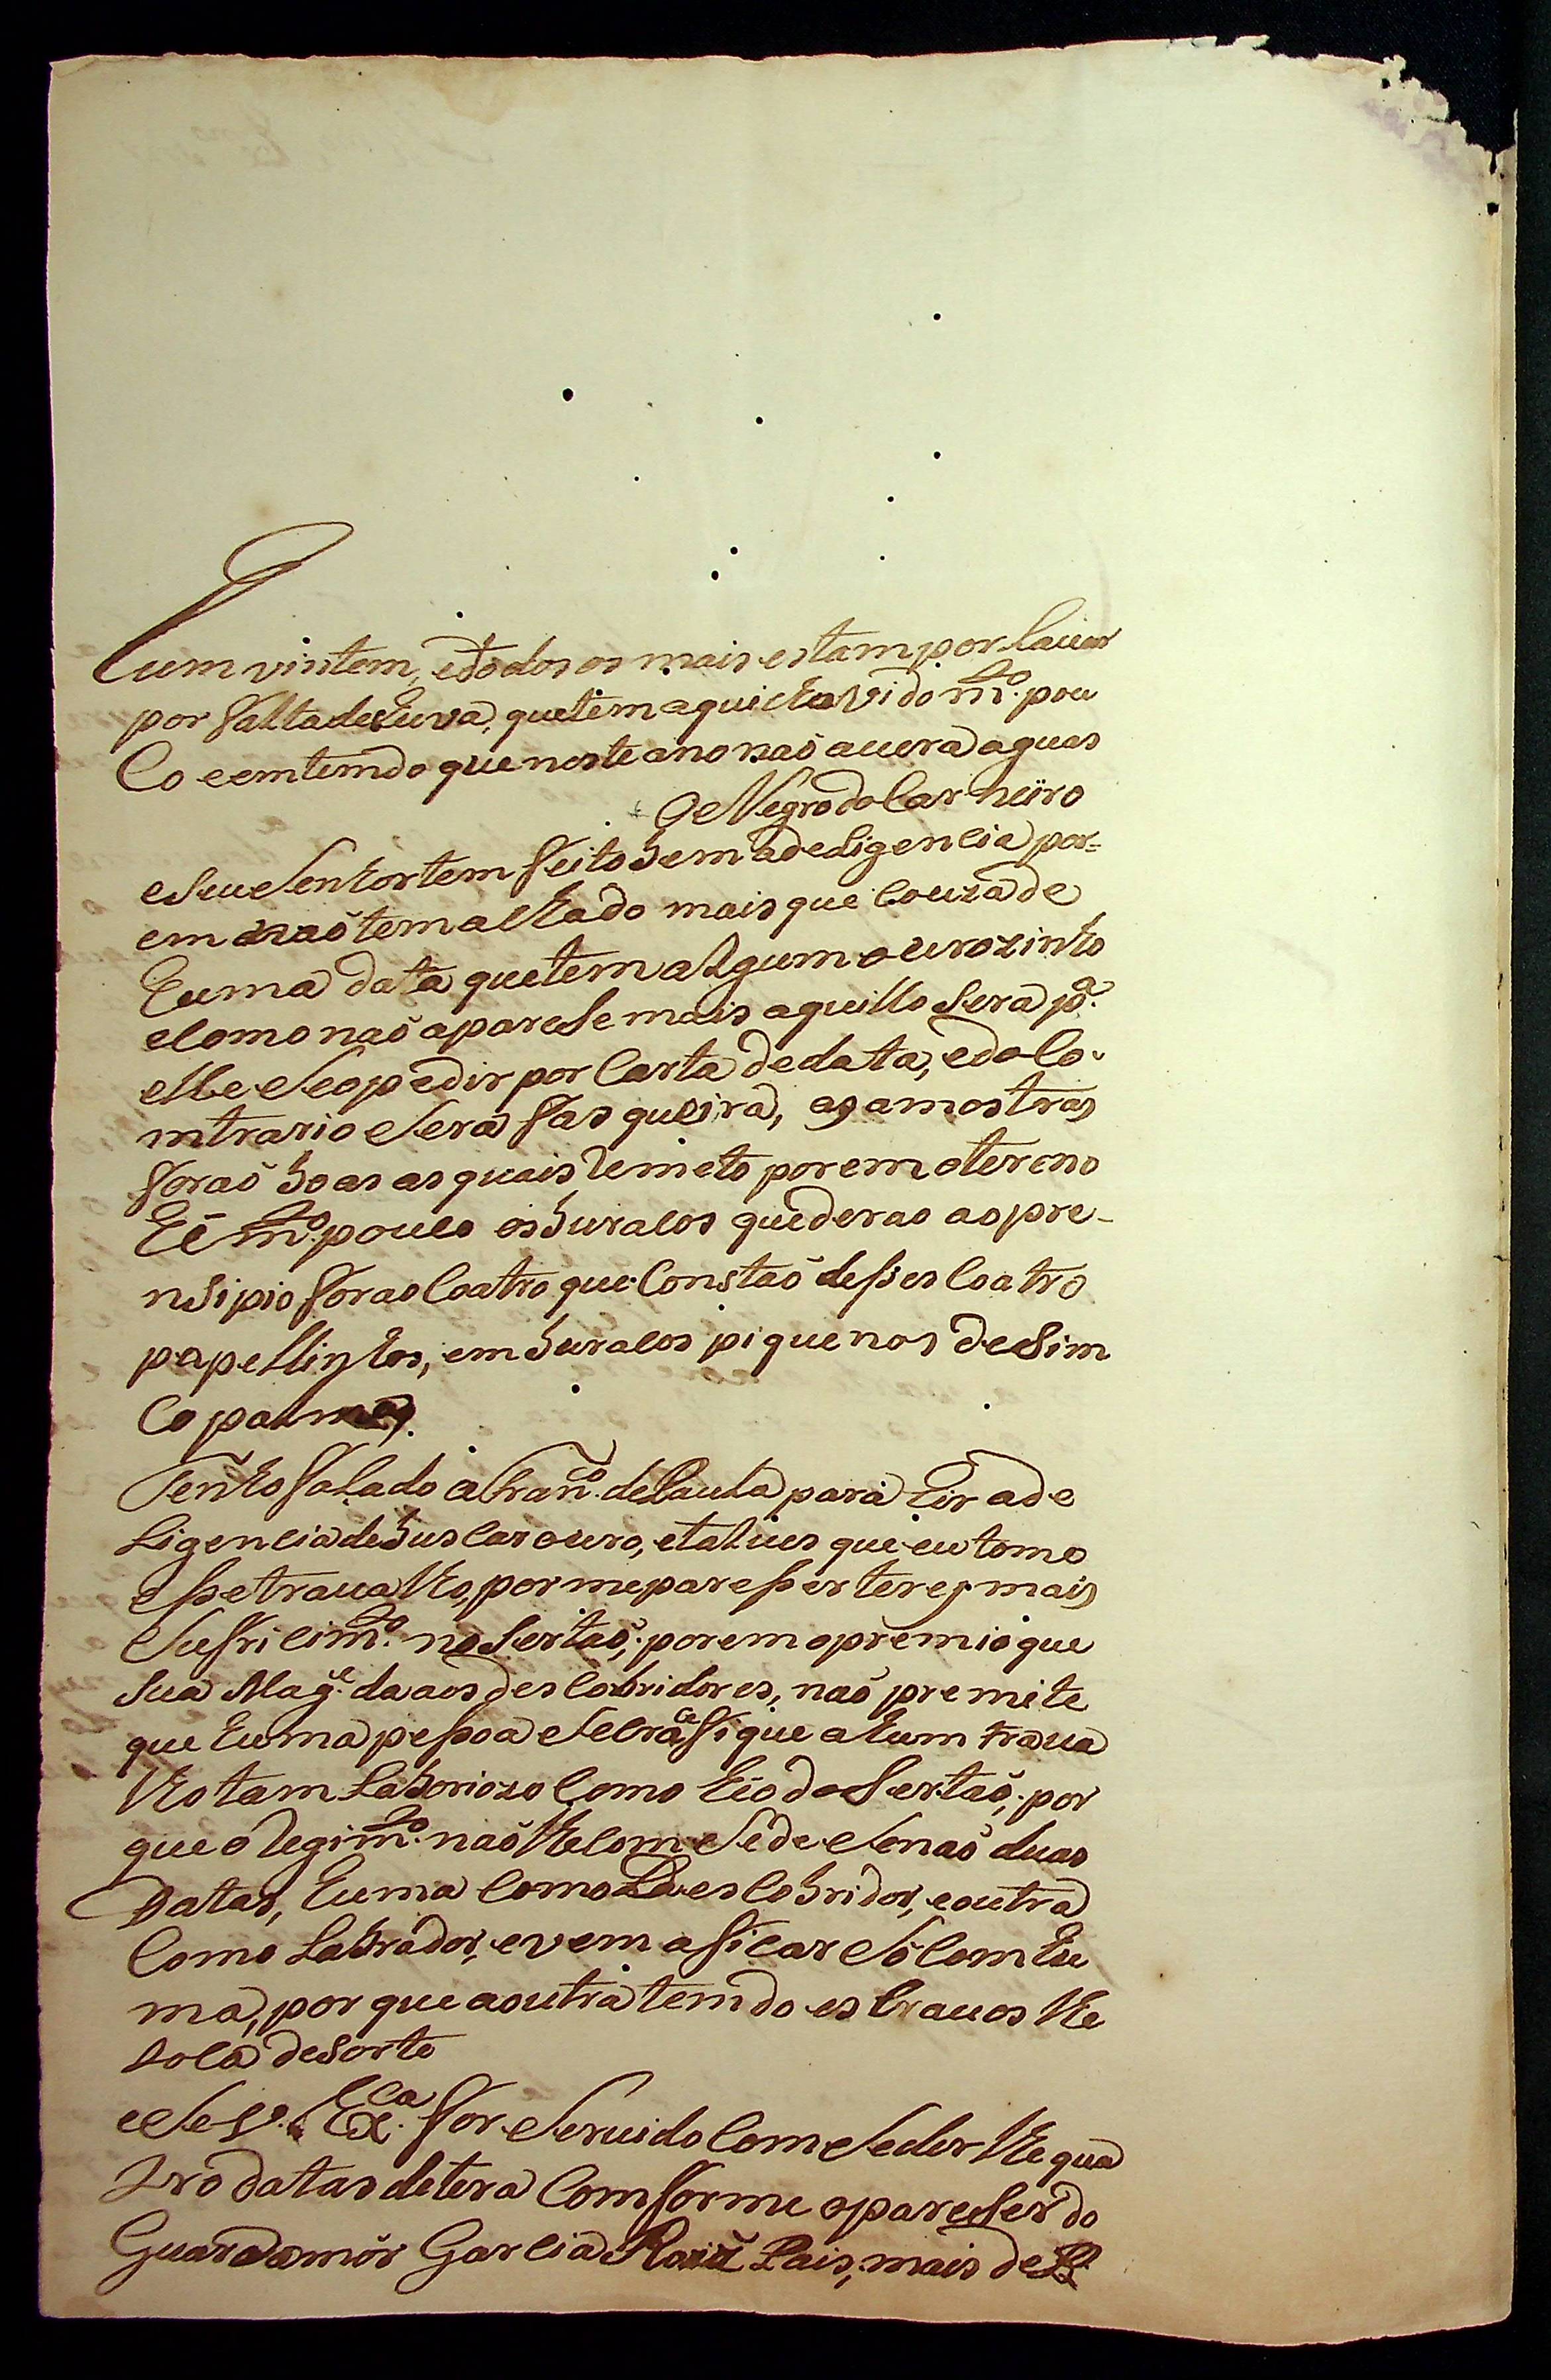 hum vintem, e todos os mais estam por lauar
por falta de huva, que tem aqui chovido m.to pou
Co e emtemdo que neste ano naõ auera aguas
O Negro do Carneiro
e seu senhor tem feito bem a deligencia por=
em naõ tem achado mais que couza de
huma data que tem algum ourozinho
e como naõ aparese mais aquillo sera p.a
elle se o pedir por Carta de data, e do Co-
mtrario sera fasqueira, as amostras
foraõ boas as quais Remeto porem o tereno
hé m.to pouco os buracos que derao ao pre-
nsipio forao Coatro que Constaõ desses Coatro
papellinhos, em buracos piquenos de sim
Co palmos.
Tenho falado a Fran.co de Cauta para hir a de
Ligencia de buscar ouro, e talues que eu tome
esse traualho, por me paresser terej mais
sufrim.to no sertaõ; porem o premio que
Sua Mag.e da aos descobridores, naõ premite
que huma pessoa se sacrafique a hum traua
lho tam Laboriozo Como hé o do sertaõ; por
que o Regim.to naõ lhe comsede senaõ duas
Datas, huma Como Descobridor, e outra
Como Labrador, e vem a ficar só Com hu
ma, por que a outra temdo escrauos lhe
toca de sorte
e se V. Ex.cia for seruido Comseder lhe qua
tro datas de tera Comforme o pareser do
Guarda mór Garcia Roiz Pais, mais de p